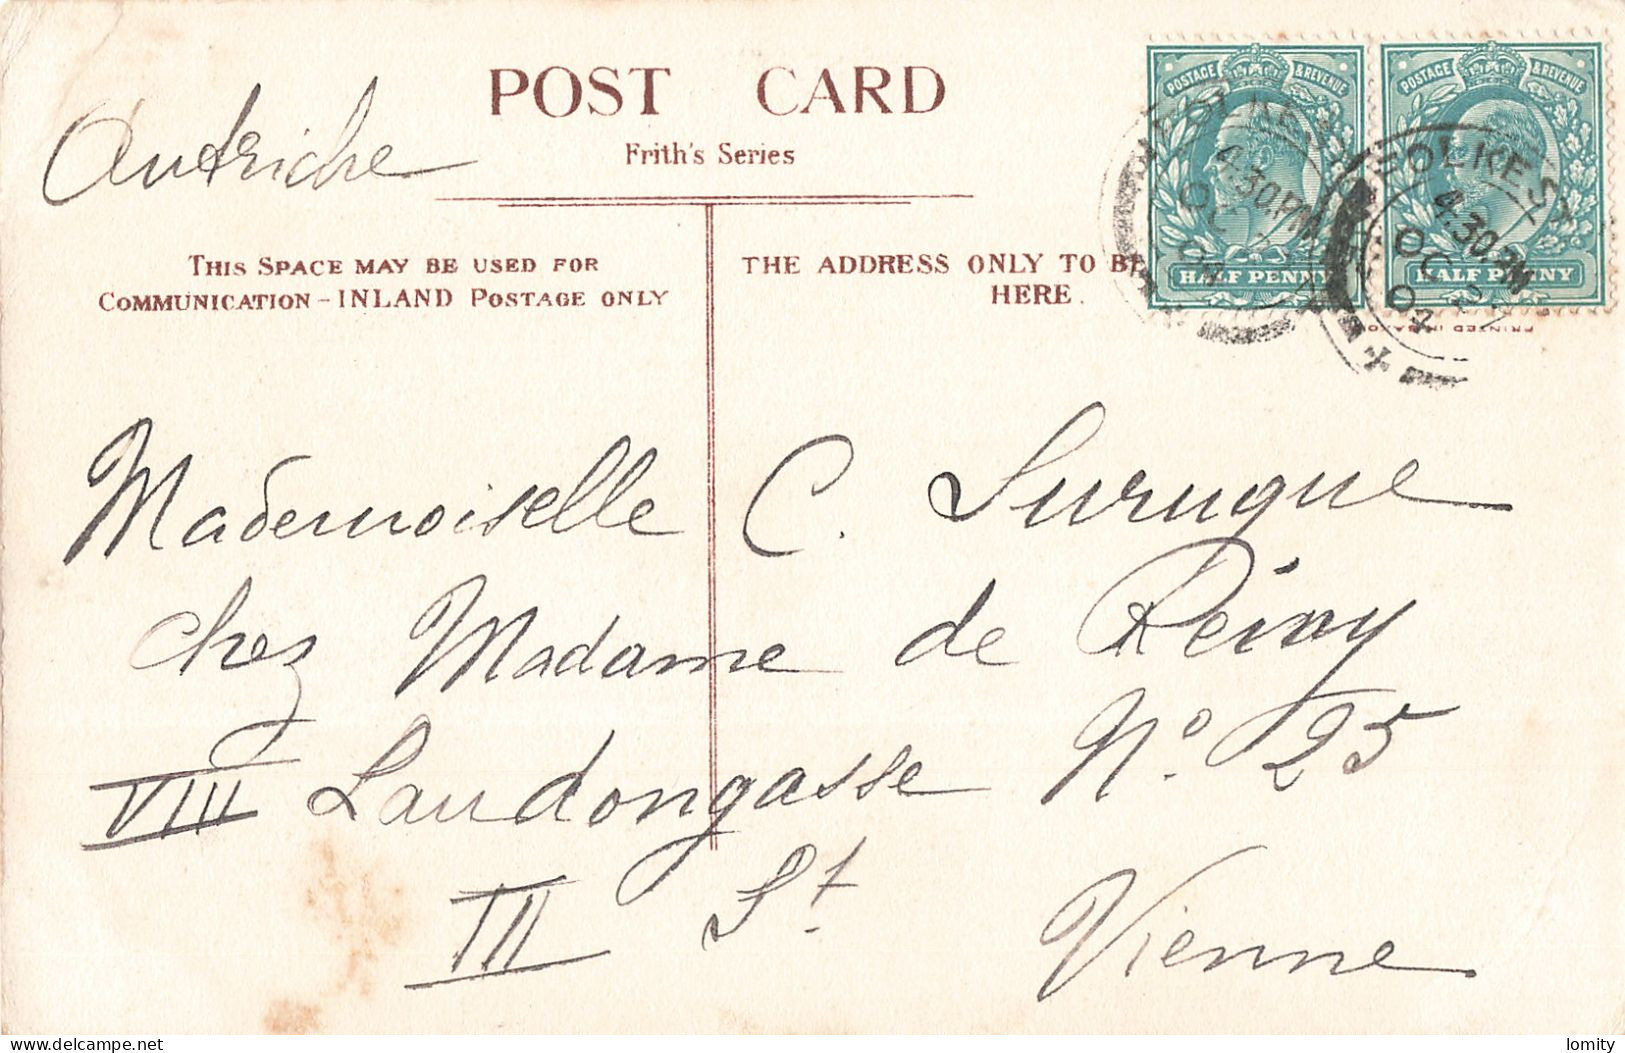 POST CARD
Frith's Series
Autriche
THIS SPACE MAY BE USED FOR
COMMUNICATION - INLAND POSTAGE ONLY
THE ADDRESS ONLY TO BE
HERE.
POSTAGE & REVENUE
HALF PENNY
POSTAGE & REVENUE
HALF PENNY
FOLKEST
4.30.PM
OC 2
04
FOLKEST
4.30.PM
OC 2
04
PRINTED IN
Mademoiselle C. Surugue
chez Madame de
VIII Laudongasse No. 25
III St.
Vienne
delcampe.net
lomity